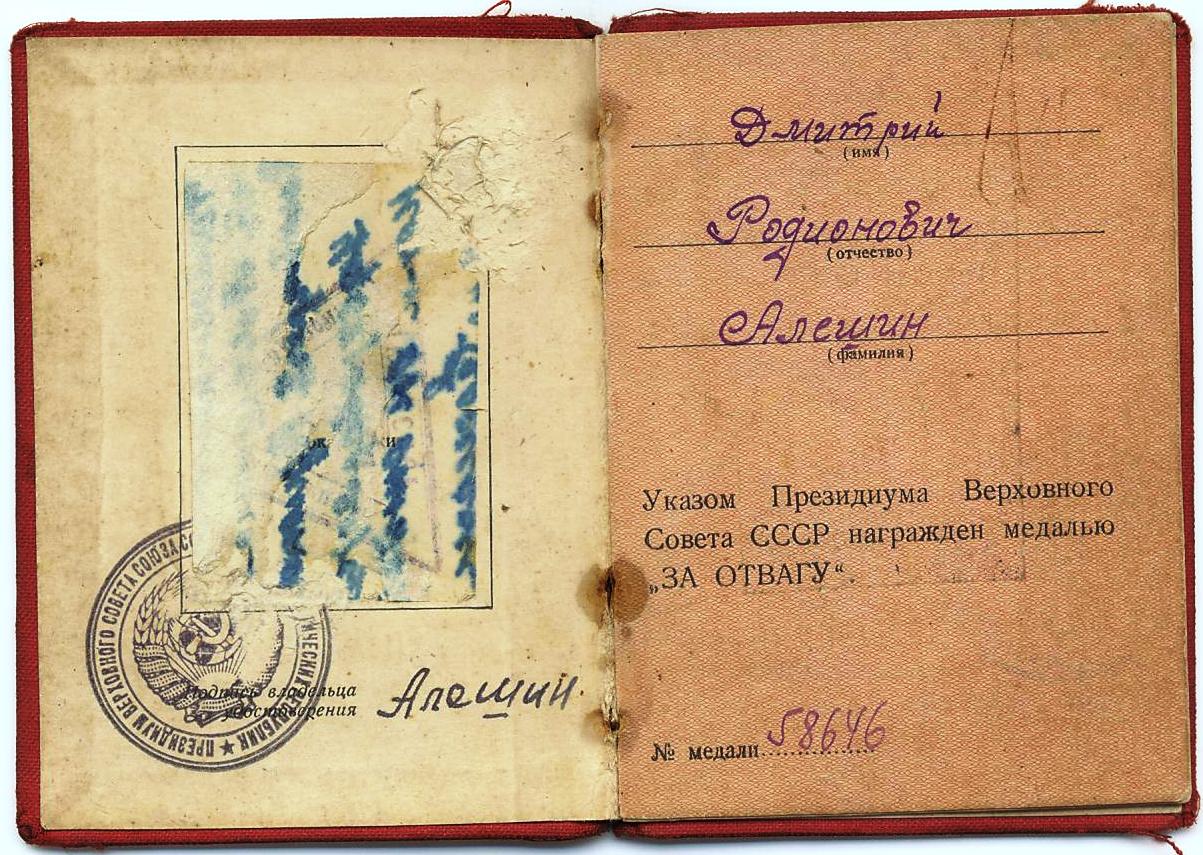 ПРЕЗИДИУМ ВЕРХОВНОГО СОВЕТА СОЮЗА
Подпись владельца
удостоверения
Алешин
Дмитрий
(имя)
Родионович
(отчество)
Алешин
(фамилия)
Указом Президиума Верховного
Совета СССР награжден медалью
„ЗА ОТВАГУ“.
№ медали 58646